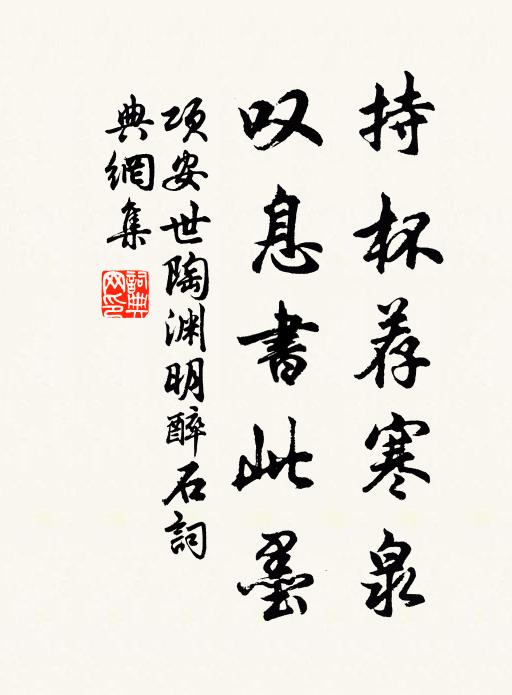 持杯荐寒泉
叹息書此墨
項安世陶渊明醉石詞
典網集
詞典網印